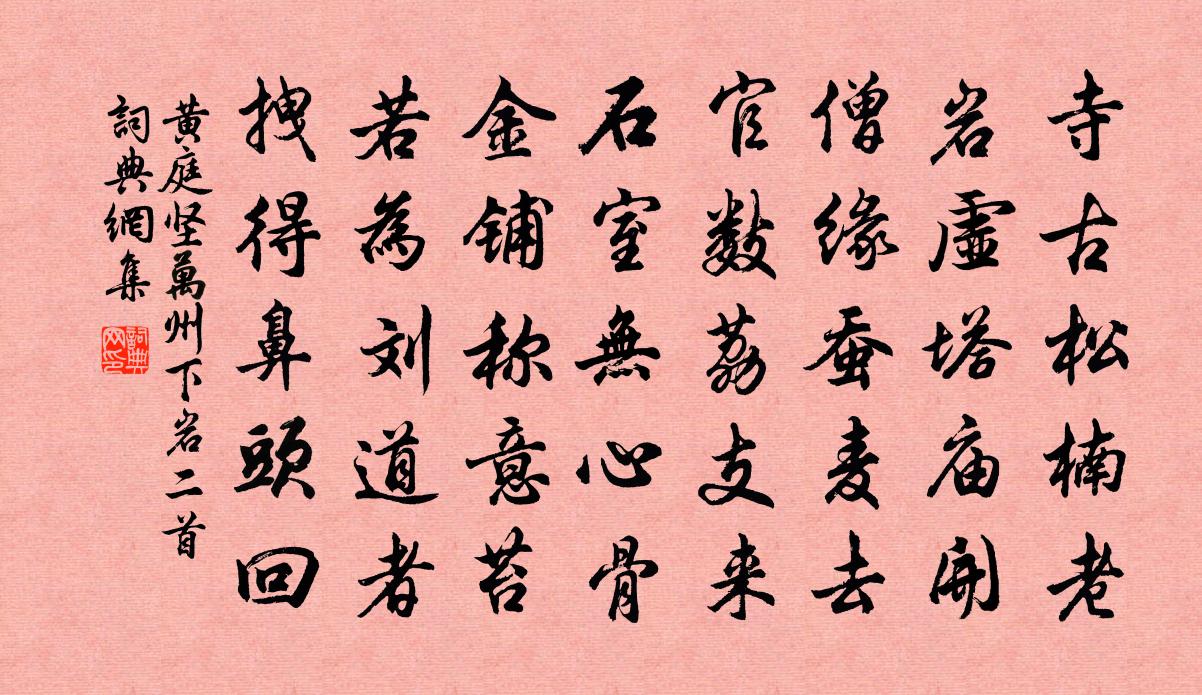 寺古松楠老
岩虚塔庙開
僧缘蚕麦去
官数荔支来
石室無心骨
金铺称意苔
若為刘道者
拽得鼻頭回
黄庭坚萬州下岩二首
詞典網集
詞典网印